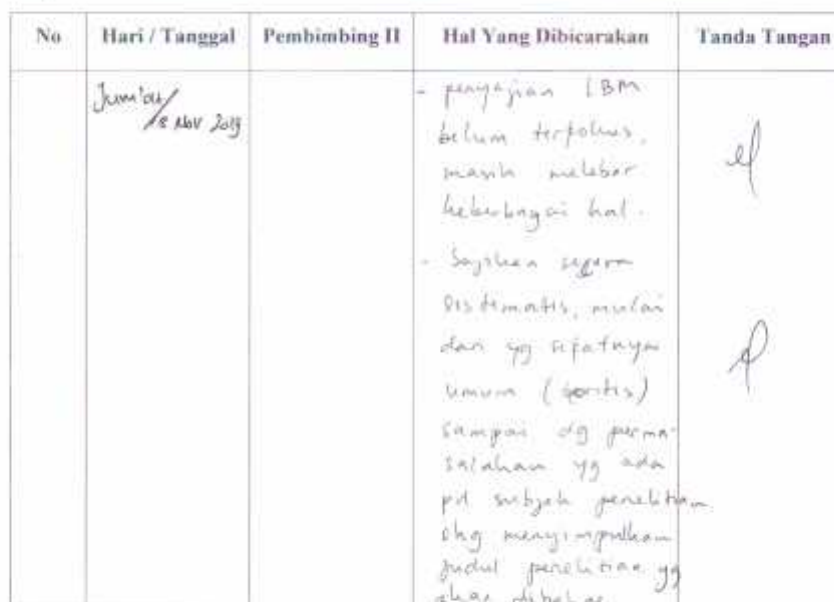 No Hari / Tanggal Pembimbing II Hal Yang Dibicarakan Tanda Tangan
Jum'at/
8 Nov 2019
- penyajian LBM
belum terfokus,
masih melebar
keberbagai hal.
- Sajikan secara
sistematis, mulai
dari yg sifatnya
umum (teoritis)
sampai dg perma-
salahan yg ada
pd subjek penelitian
menyimpulkan
judul penelitian yg
akan dibahas